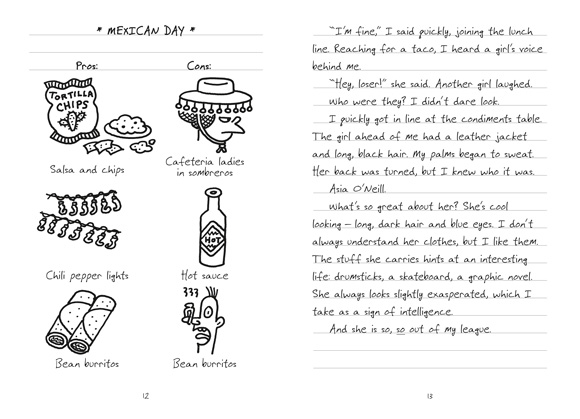 * MEXICAN DAY *
Pros:
Cons:
TORTILLA
CHIPS
Salsa and chips
Cafeteria ladies
in sombreros
Chili pepper lights
HOT
Hot sauce
Bean burritos
Bean burritos
12
"I'm fine," I said quickly, joining the lunch
line. Reaching for a taco, I heard a girl's voice
behind me.
"Hey, loser!" she said. Another girl laughed.
Who were they? I didn't dare look.
I quickly got in line at the condiments table.
The girl ahead of me had a leather jacket
and long, black hair. My palms began to sweat.
Her back was turned, but I knew who it was.
Asia O'Neill.
What's so great about her? She's cool
looking – long, dark hair and blue eyes. I don't
always understand her clothes, but I like them.
The stuff she carries hints at an interesting
life: drumsticks, a skateboard, a graphic novel.
She always looks slightly exasperated, which I
take as a sign of intelligence.
And she is so, so out of my league.
13